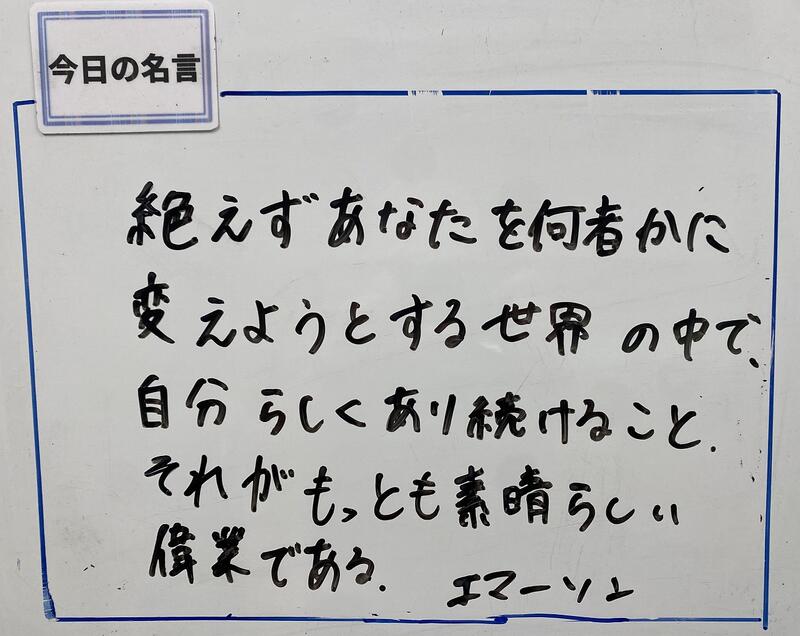 今日の名言
絶えずあなたを何者かに
変えようとする世界の中で、
自分らしくあり続けること.
それがもっとも素晴らしい
偉業である.
エマーソン